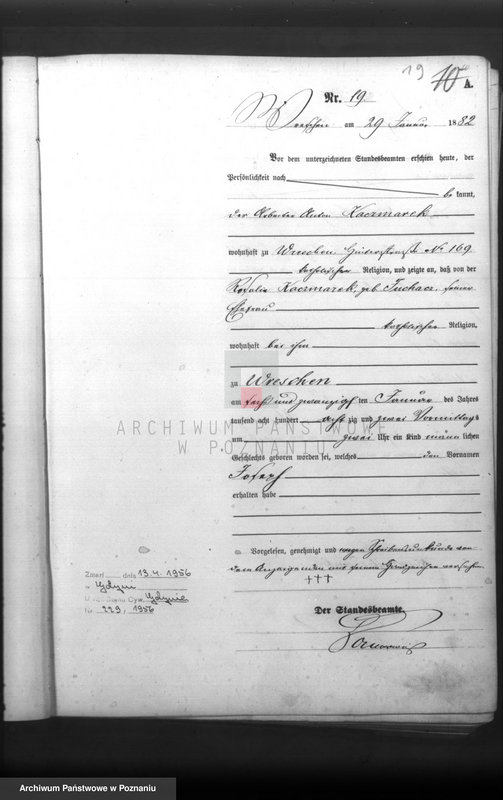 19 10
A.
Nr. 19.
Wreschen am 29 Januar 1882
Vor dem unterzeichneten Standesbeamten erschien heute, der
Persönlichkeit nach
be kannt,
der Arbeiter Anton Kaczmarek
wohnhaft zu Wreschen No 169
katholischer Religion, und zeigte an, daß von der
Rosalia Kaczmarek, geb Tuchacz, seiner
Ehefrau
katholischer Religion,
wohnhaft bei ihm
zu Wreschen
am sechs und zwanzigsten Januar des Jahres
tausend acht hundert acht zig und zwei Vormittags
um zwei Uhr ein Kind männ lichen
Geschlechts geboren worden sei, welches den Vornamen
Joseph
erhalten habe
Vorgelesen, genehmigt und wegen Schreibensunkunde von
dem Anzeigenden mit seinem Handzeichen versehen.
†††
Der Standesbeamte.
Zmarł dnia 13.4.1956
w Gdyni
Urząd Stanu Cyw. Gdynia
Nr. 229, 1956
ARCHIWUM PAŃSTWOWE
W POZNANIU
Archiwum Państwowe w Poznaniu